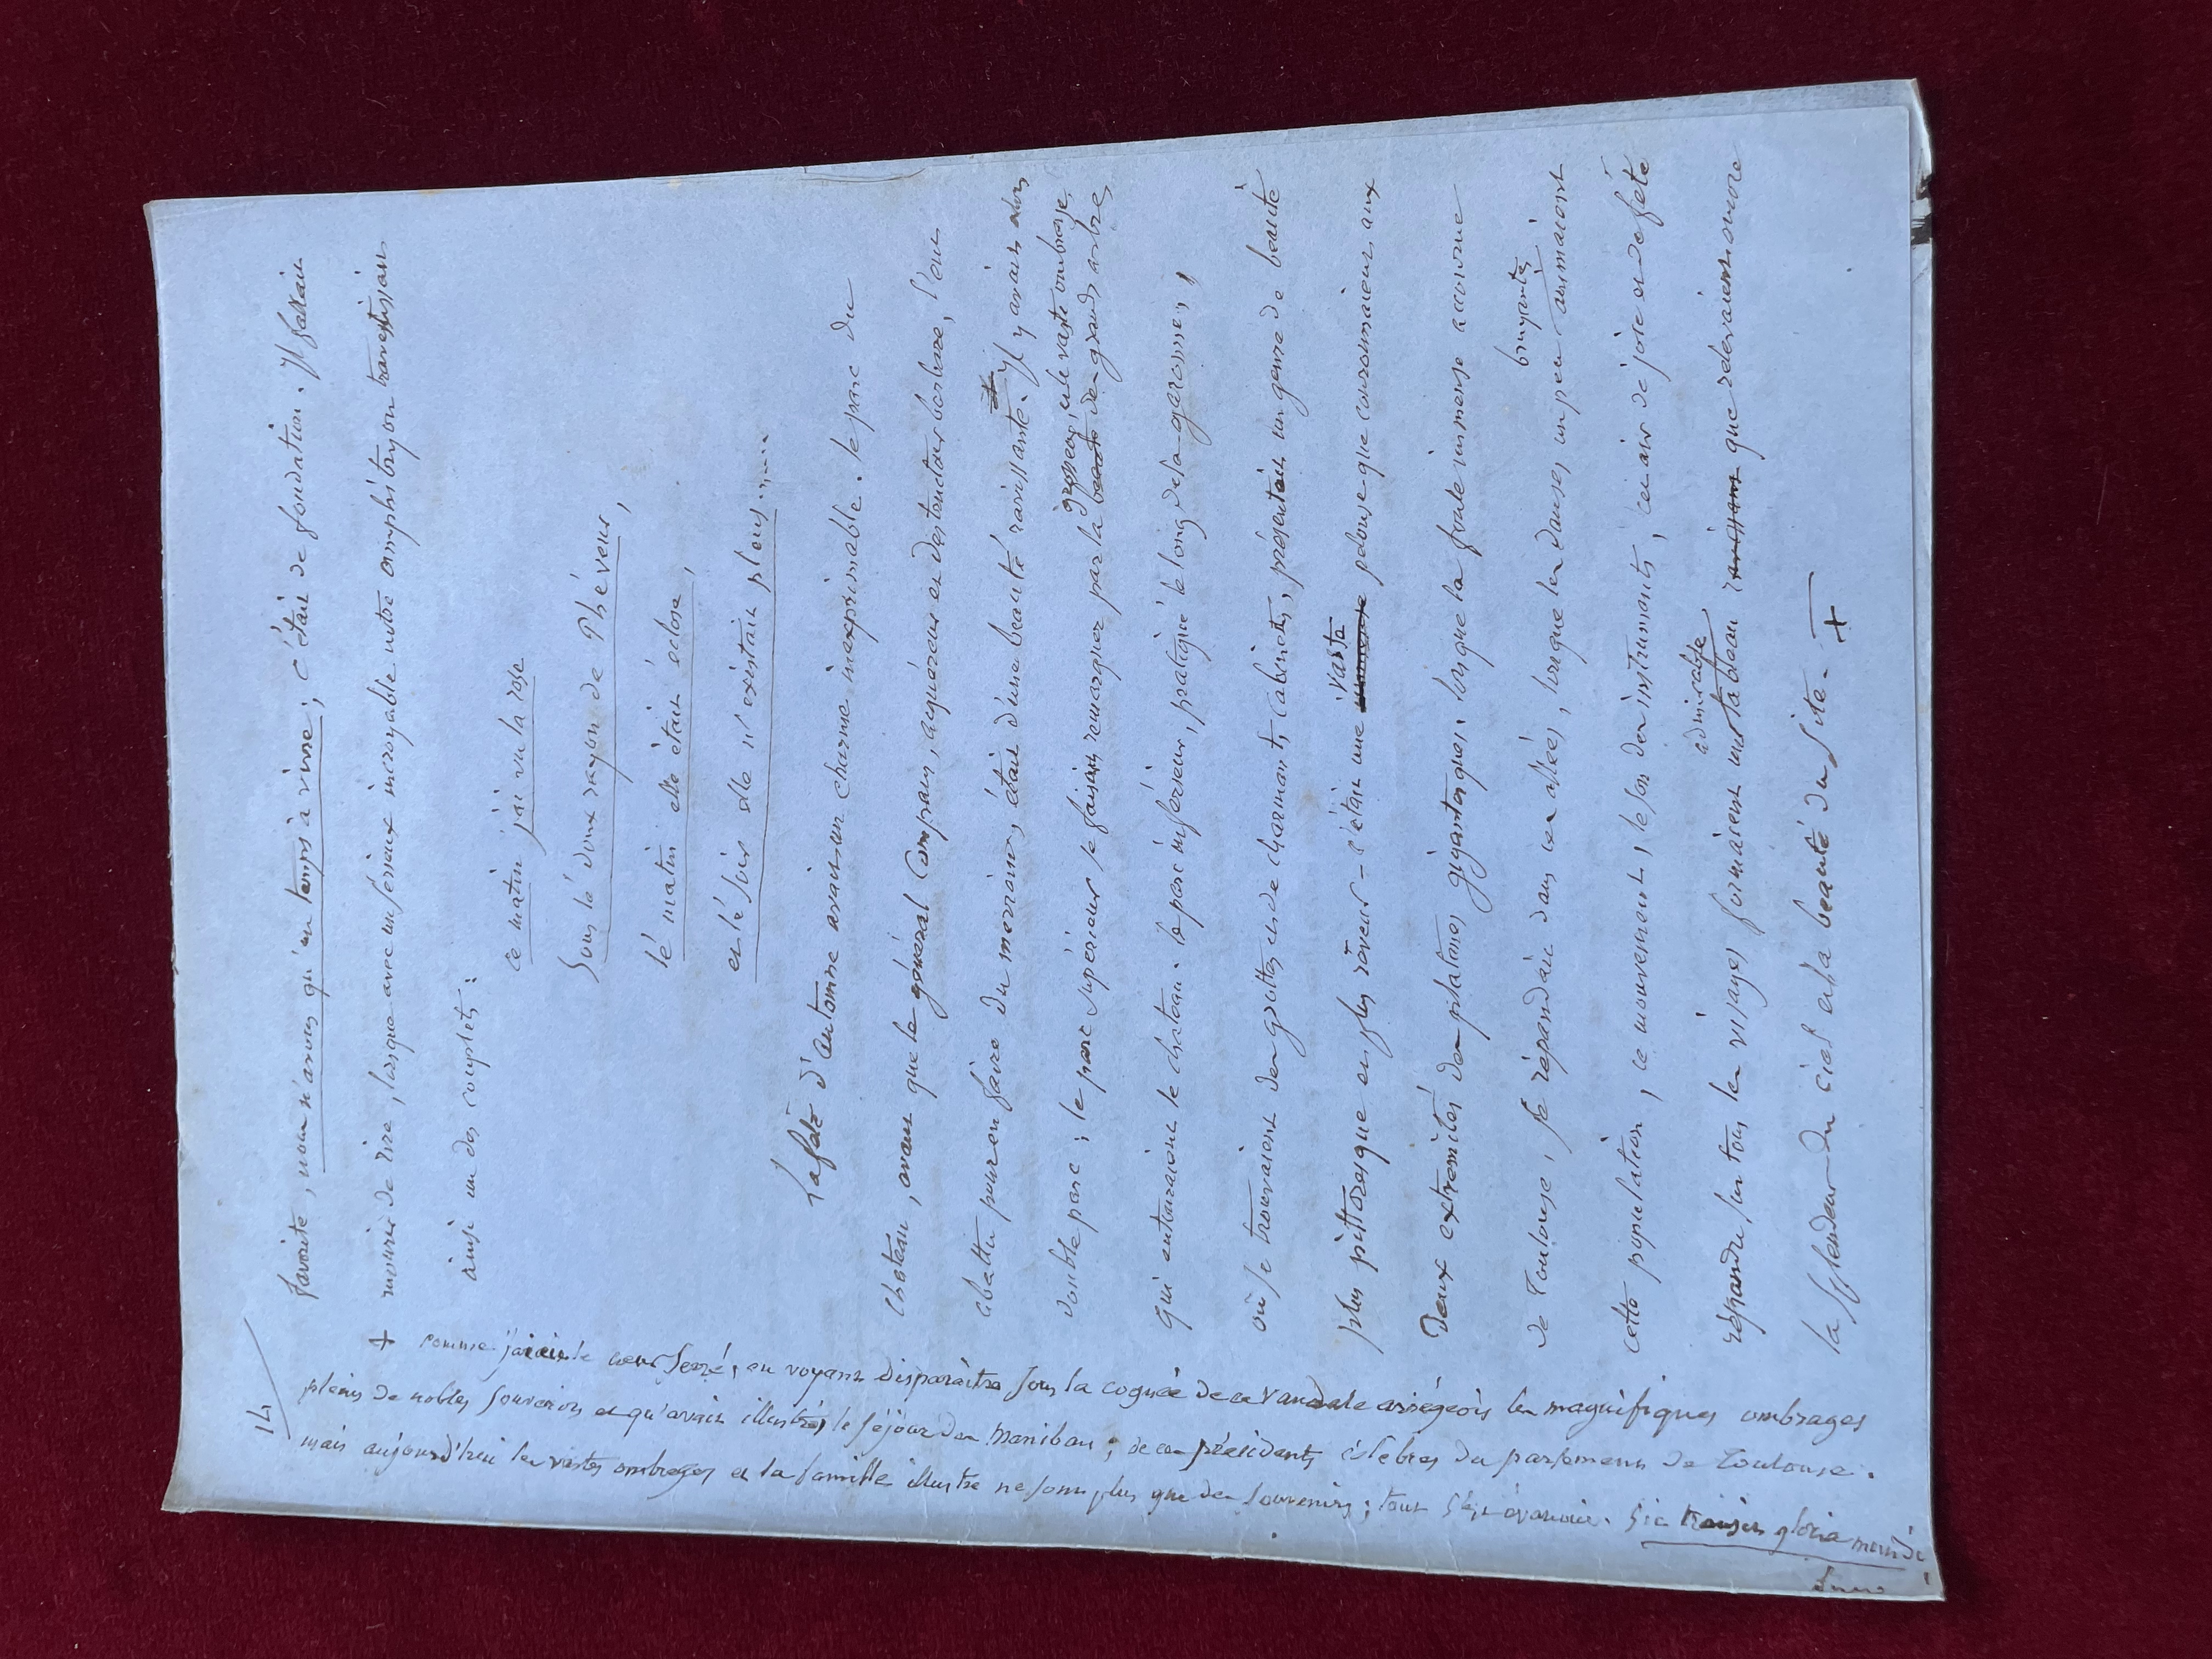 14
favorite, nous n'avons qu'un temps à vivre; c'était de fondation. Il fallait
mourir de rire, lorsque avec un sérieux incroyable notre amphitryon travestissait
ainsi un des couplets:
ce matin j'ai vu la rose
Sous le doux rayon de Phéveur,
le matin elle était éclose,
et le soir elle n'existait pleus.....
La fête d'automne avait un charme inexprimable. le parc du
chateau, avant que le général Compans, acquéreur et destructeur barbare, l'eut
abattu pour en faire du merrains, était d'une beauté ravissante. Il y avait alors
double parc; le parc supérieur se faisait remarquer par la beauté grosseur, et le vaste ombrage, de grands arbres
qui entouraient le chateau. le parc inférieur, pratiqué le long de la garonne,
où se trouvaient des grottes et de charmants cabinets, présentait un genre de beauté
plus pittoresque et plus rêveur - c'était une vaste pelouse que couronnaient aux
Deux extremités des platanes gigantesques. lorsque la foule immense accourue
de Toulouse, se répandait dans ces allées, lorsque les danses un peu bruyantes animaient
cette population, ce mouvement, le son des instruments, cet air de joie et de fête
répandu sur tous les visages formaient un admirable tableau ravissant que relevaient encore
la splendeur du ciel et la beauté du site. +
+ comme j'avais le cœur serré, en voyant disparaitre sous la cognée de ce vandale ariégeois les magnifiques ombrages
pleins de nobles souvenirs et qu'avait illustrés le séjour des maniban; de ces présidents célèbres du parlement de Toulouse.
mais aujourd'hui les vastes ombrages et la famille illustre ne sont plus que des souvenirs; tout s'est évanoui. Sic transit gloria mundi!